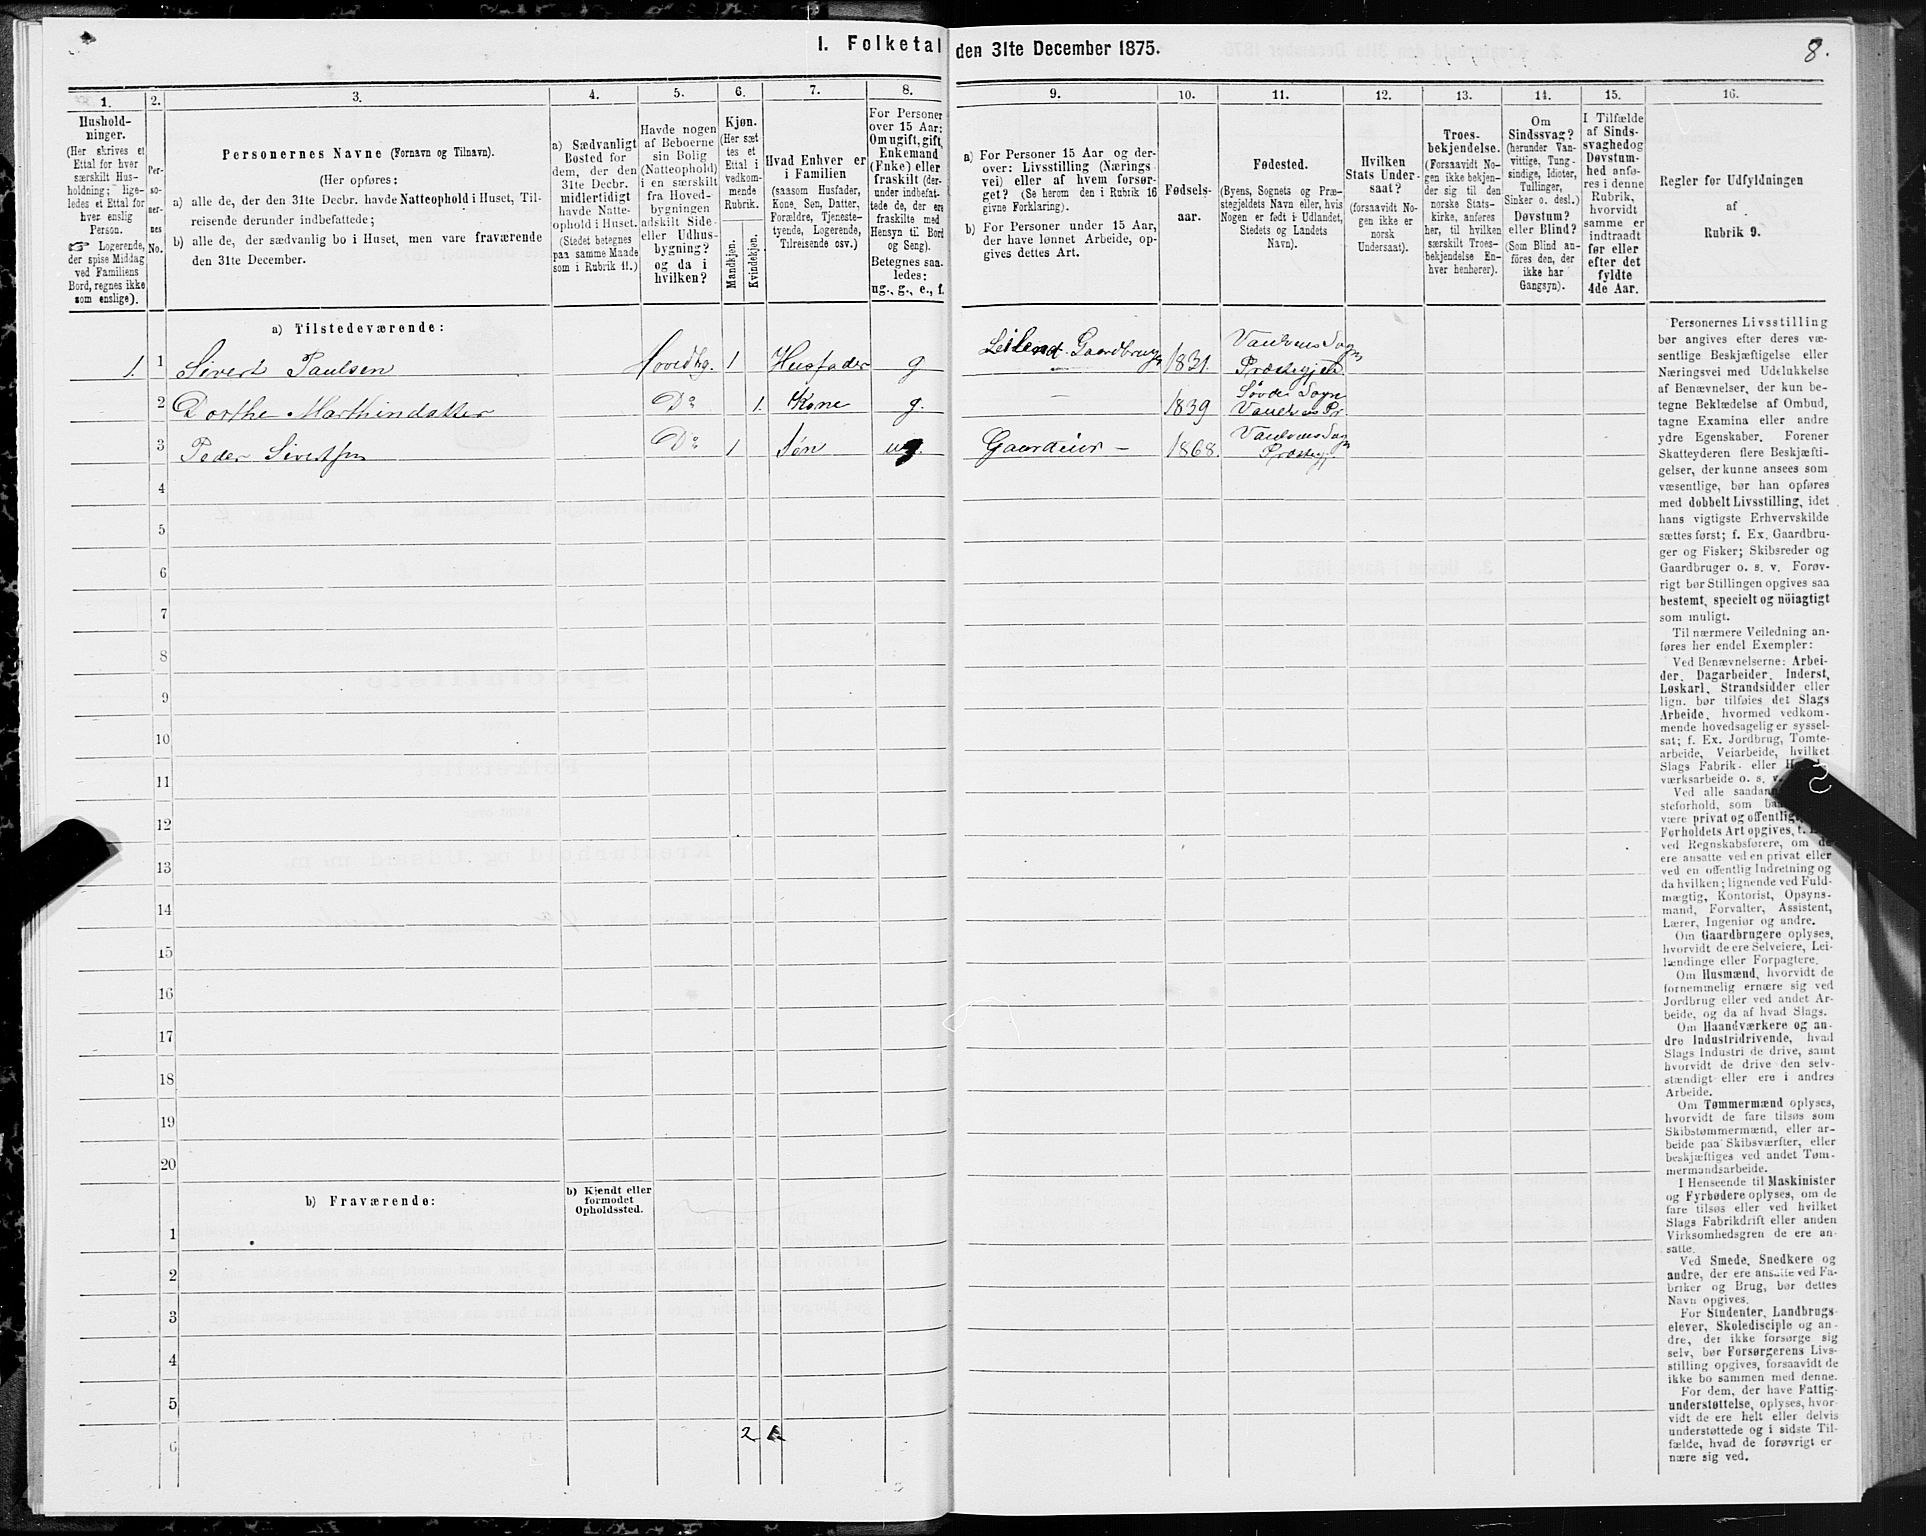 1. Folketal den 31te December 1875.
8.
1.
2.
3.
4.
5.
6.
7.
8.
9.
10.
11.
12.
13.
14.
15.
16.
Hushold-
ninger.
(Her skrives et
Ettal for hver
særskilt Hus-
holdning; lige-
ledes et Ettal for
hver enslig
Person.
☞ Logerende,
der spise Middag
ved Familiens
Bord, regnes ikke
som enslige).
Per-
so-
ner-
nes
No.
Personernes Navne (Fornavn og Tilnavn).
(Her opføres:
a) alle de, der den 31te Decbr. havde Natteophold i Huset, Til-
reisende derunder indbefattede;
b) alle de, der sædvanlig bo i Huset, men vare fraværende
den 31te December.
a) Sædvanligt
Bosted for
dem, der den
31te Decbr.
midlertidigt
havde Natte-
ophold i Huset.
(Stedet betegnes
paa samme Maade
som i Rubrik 11.)
Havde nogen
af Beboerne
sin Bolig
(Natteophold)
i en særskilt
fra Hoved-
bygningen
adskilt Side-
eller Udhus-
bygning?
og da i
hvilken?
Kjøn.
(Her sæt
tes et
Ettal i
vedkom-
mende
Rubrik.
Mandkjøn.
Kvindekjøn.
Hvad Enhver er
i Familien
(saasom Husfader,
Kone, Søn, Datter,
Forældre, Tjeneste-
tyende, Logerende,
Tilreisende osv.)
For Personer
over 15 Aar:
Om ugift, gift,
Enkemand
(Enke) eller
fraskilt (der-
under indbefat-
tede de, der ere
fraskilte med
Hensyn til Bord
og Seng).
Betegnes saa-
ledes:
ug., g., e., f.
a) For Personer 15 Aar og der-
over: Livsstilling (Nærings
vei) eller af hvem forsør-
get? (Se herom den i Rubrik 16
givne Forklaring).
b) For Personer under 15 Aar,
der have lønnet Arbeide, op-
gives dettes Art.
Fødsels-
aar.
Fødested.
(Byens, Sognets og Præ-
stegjeldets Navn eller, hvis
Nogen er født i Udlandet,
Stedets og Landets
Navn).
Hvilken
Stats Under-
saat?
(forsaavidt No-
gen ikke er
norsk
Undersaat).
Troes-
bekjendelse.
(Forsaavidt No-
gen ikke bekjen-
der sig til den
norske Stats-
kirke, anføres
her, til hvilken
særskilt Troes-
bekjendelse En-
hver henhører).
Om
Sindssvag?
(herunder Van-
vittige, Tung-
sindige, Idioter,
Tullinger,
Sinker o. desl.)
Døvstum?
eller Blind?
(Som Blind an-
føres den, der
ikke har
Gangsyn).
I Tilfælde
af Sinds-
svaghed og
Døvstum-
hed anfø-
res i denne
Rubrik,
hvorvidt
samme er
indtraadt
før eller
efter det
fyldte
4de Aar.
Regler for Udfyldningen
af
Rubrik 9.
a) Tilstedeværende:
1. 1 Sivert Paulsen Hovedbg. 1 Husfader g Leilend. Gaardbruger 1831. Vanlvens Sogn
Præstegjeld
2 Dorthe Marthindatter Do 1. Kone g. — 1839 Søvde Sogn
Vanlvens Pr
3 Peder Sivertsen Do 1 Søn ug. — 1868. Vanlvens Sogn
Præstegj.
4
5
6
7
8
9
10
11
12
13
14
15
16
17
18
19
20
b) Fraværende:
b) Kjendt eller
formodet
Opholdssted.
1
2
3
4
5
6
2 1
Personernes Livsstilling
bør angives efter deres væ-
sentlige Beskjæftigelse eller
Næringsvei med Udelukkelse
af Benævnelser, der kun be-
tegne Beklædelse af Ombud,
tagne Examina eller andre
ydre Egenskaber. Forener
Skatteyderen flere Beskjæfti-
gelser, der kunne ansees som
væsentlige, bør han opføres
med dobbelt Livsstilling, idet
hans vigtigste Erhvervskilde
sættes først; f. Ex. Gaardbru-
ger og Fisker; Skibsreder og
Gaardbruger o. s. v. Forøv-
rigt bør Stillingen opgives saa
bestemt, specielt og nöiagtigt
som muligt.
Til nærmere Veiledning an-
føres her endel Exempler:
Ved Benævnelserne: Arbei-
der, Dagarbeider, Inderst,
Løskarl, Strandsidder eller
lign. bør tilføies det Slags
Arbeide, hvormed vedkom-
mende hovedsagelig er syssel-
sat; f. Ex. Jordbrug, Tomte-
arbeide, Veiarbeide, hvilket
Slags Fabrik- eller
værksarbeide o. s. v.
Ved alle
steforhold, som
være privat og offentligt,
Forholdets Art opgives,
ved Regnskabsførere, om de
ere ansatte ved en privat eller
ved en offentlig Indretning og
da hvilken; lignende ved Fuld-
mægtig, Kontorist, Opsyns-
mand, Forvalter, Assistent,
Lærer, Ingeniør og andre.
Om Gaardbrugere oplyses,
hvorvidt de ere Selveiere, Lei-
lændinge eller Forpagtere.
Om Husmænd, hvorvidt de
fornemmelig ernære sig ved
Jordbrug eller ved andet Ar-
beide, og da af hvad Slags.
Om Haandværkere og an-
dre Industridrivende, hvad
Slags Industri de drive, samt
hvorvidt de drive den selv-
stændigt eller ere i andres
Arbeide.
Om Tømmermænd oplyses,
hvorvidt de fare tilsøs som
Skibstømmermænd, eller ar-
beide paa Skibsværfter, eller
beskjæftiges ved andet Tøm-
mermandsarbeide.
I Henseende til Maskinister
og Fyrbødere oplyses, om de
fare tilsøs eller ved hvilket
Slags Fabrikdrift eller anden
Virksomhedsgren de ere an-
satte.
Ved Smede, Snedkere og
andre, der ere ansatte ved Fa-
briker og Brug, bør dettes
Navn opgives.
For Studenter, Landbrugs-
elever, Skoledisciple og an-
dre, der ikke forsørge sig
selv, bør Forsørgerens Livs-
stilling opgives, forsaavidt de
ikke bo sammen med denne.
For dem, der have Fattig-
understøttelse, oplyses, hvor-
vidt de ere helt eller delvis
understøttede og i sidste Til-
fælde, hvad de forøvrigt er-
nære sig ved.